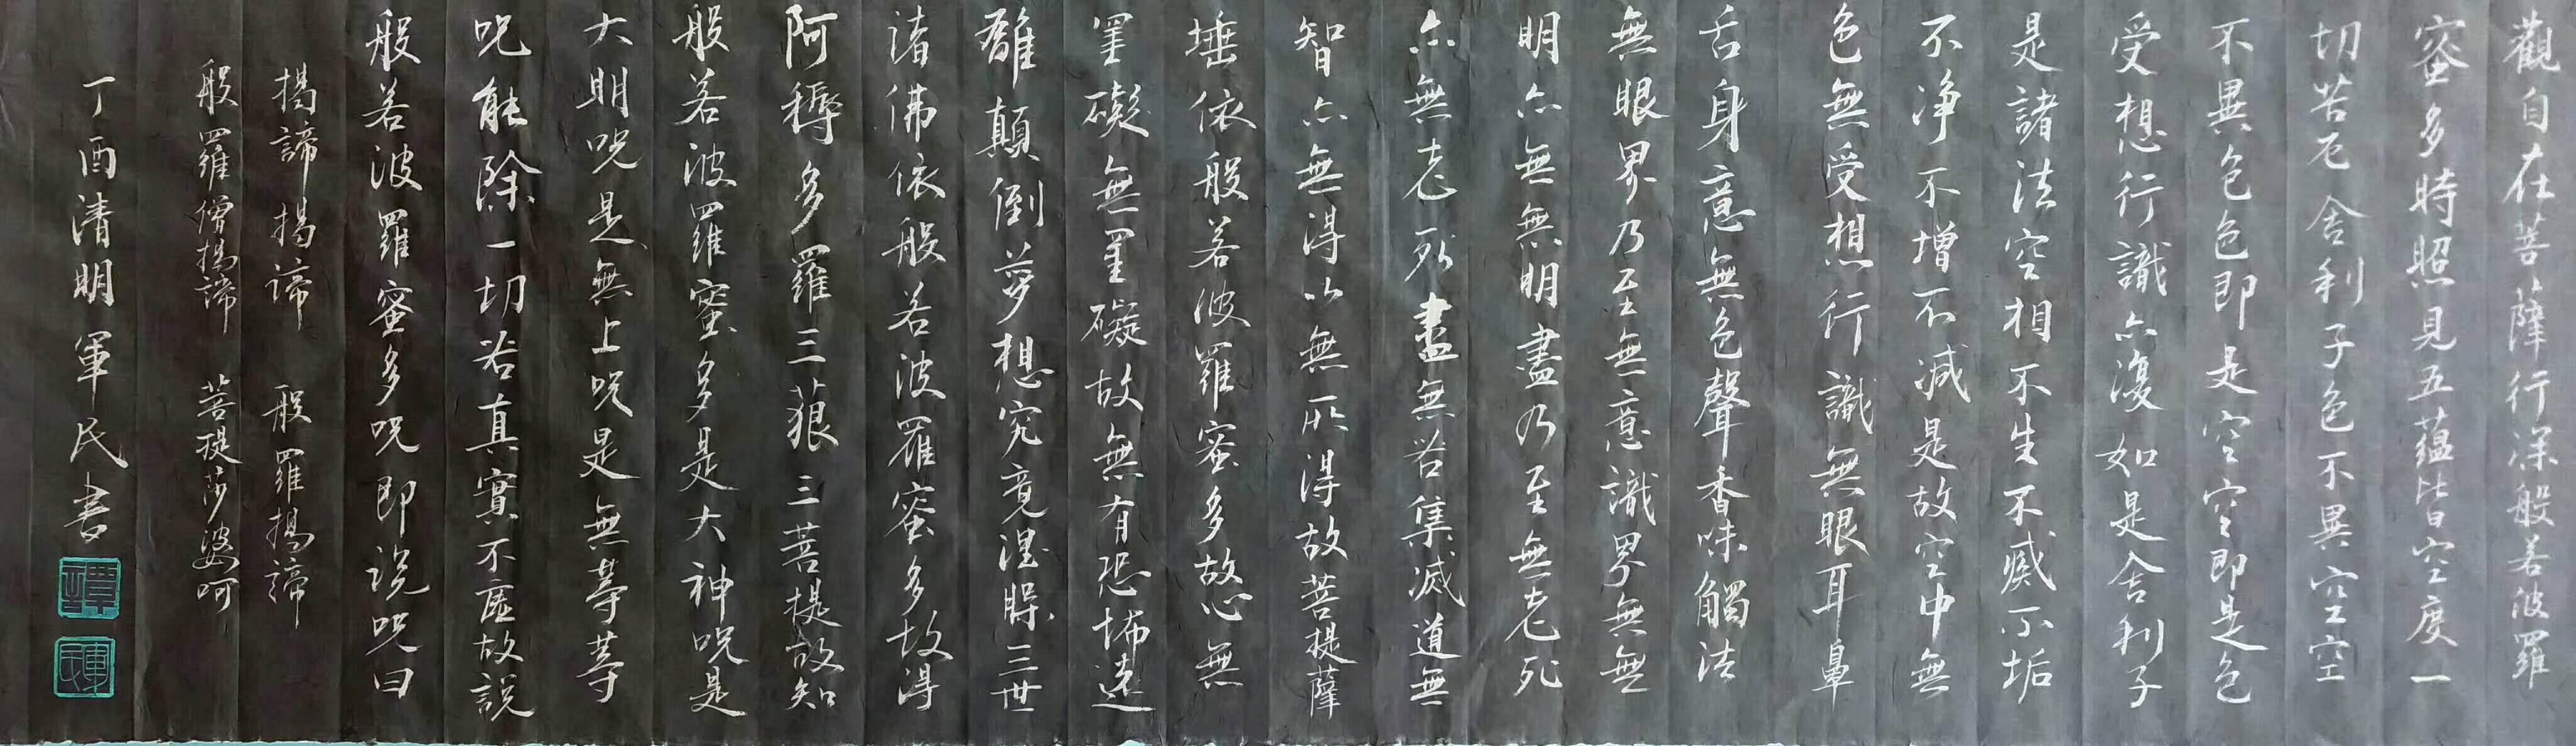 觀自在菩薩行深般若波羅
密多時照見五蘊皆空度一
切苦厄舍利子色不異空空
不異色色即是空空即是色
受想行識亦復如是舍利子
是諸法空相不生不滅不垢
不净不增不减是故空中無
色無受想行識無眼耳鼻
舌身意無色聲香味觸法
無眼界乃至無意識界無無
明亦無無明盡乃至無老死
亦無老死盡無苦集滅道無
智亦無得以無所得故菩提薩
埵依般若波羅蜜多故心無
罣礙無罣礙故無有恐怖遠
離顛倒夢想究竟涅槃三世
諸佛依般若波羅密多故得
阿耨多羅三藐三菩提故知
般若波羅蜜多是大神呪是
大明呪是無上呪是無等等
呪能除一切苦真實不虛故說
般若波羅蜜多呪即說呪曰
揭諦揭諦 般羅揭諦
般羅僧揭諦 菩提莎婆呵
丁酉清明軍民書
譚印
軍民